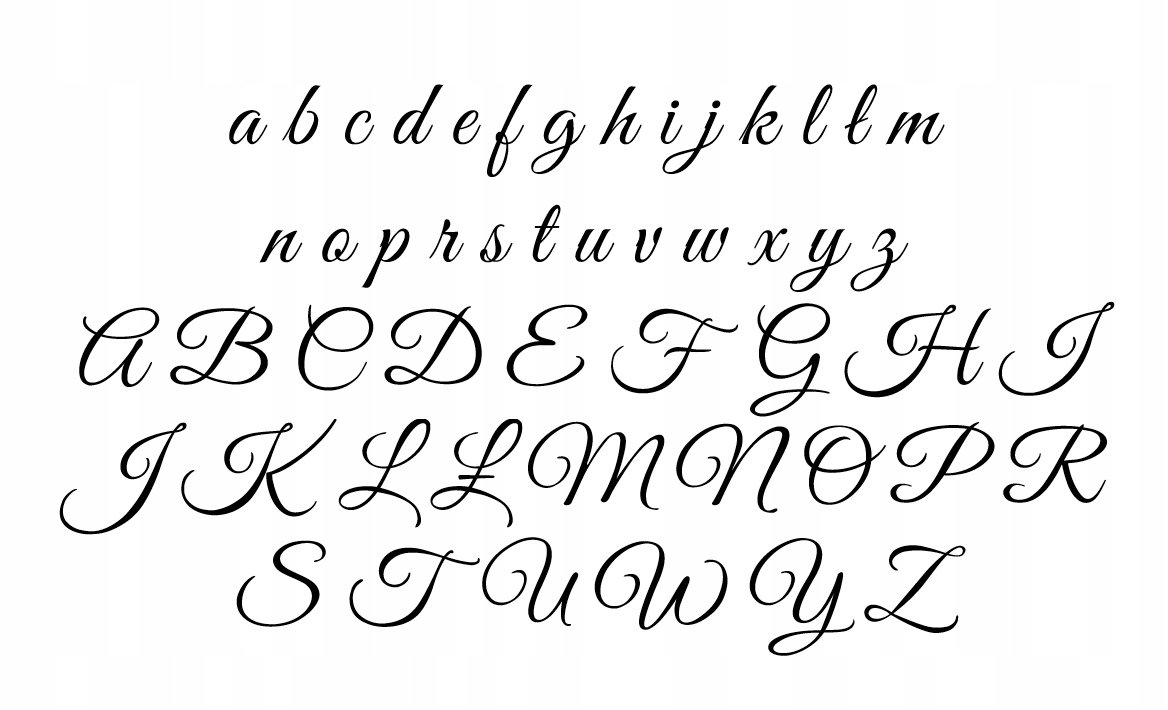 a b c d e f g h i j k l ł m
n o p r s t u v w x y z
A B C D E F G H I
J K L Ł M N O P R
S T U W Y Z